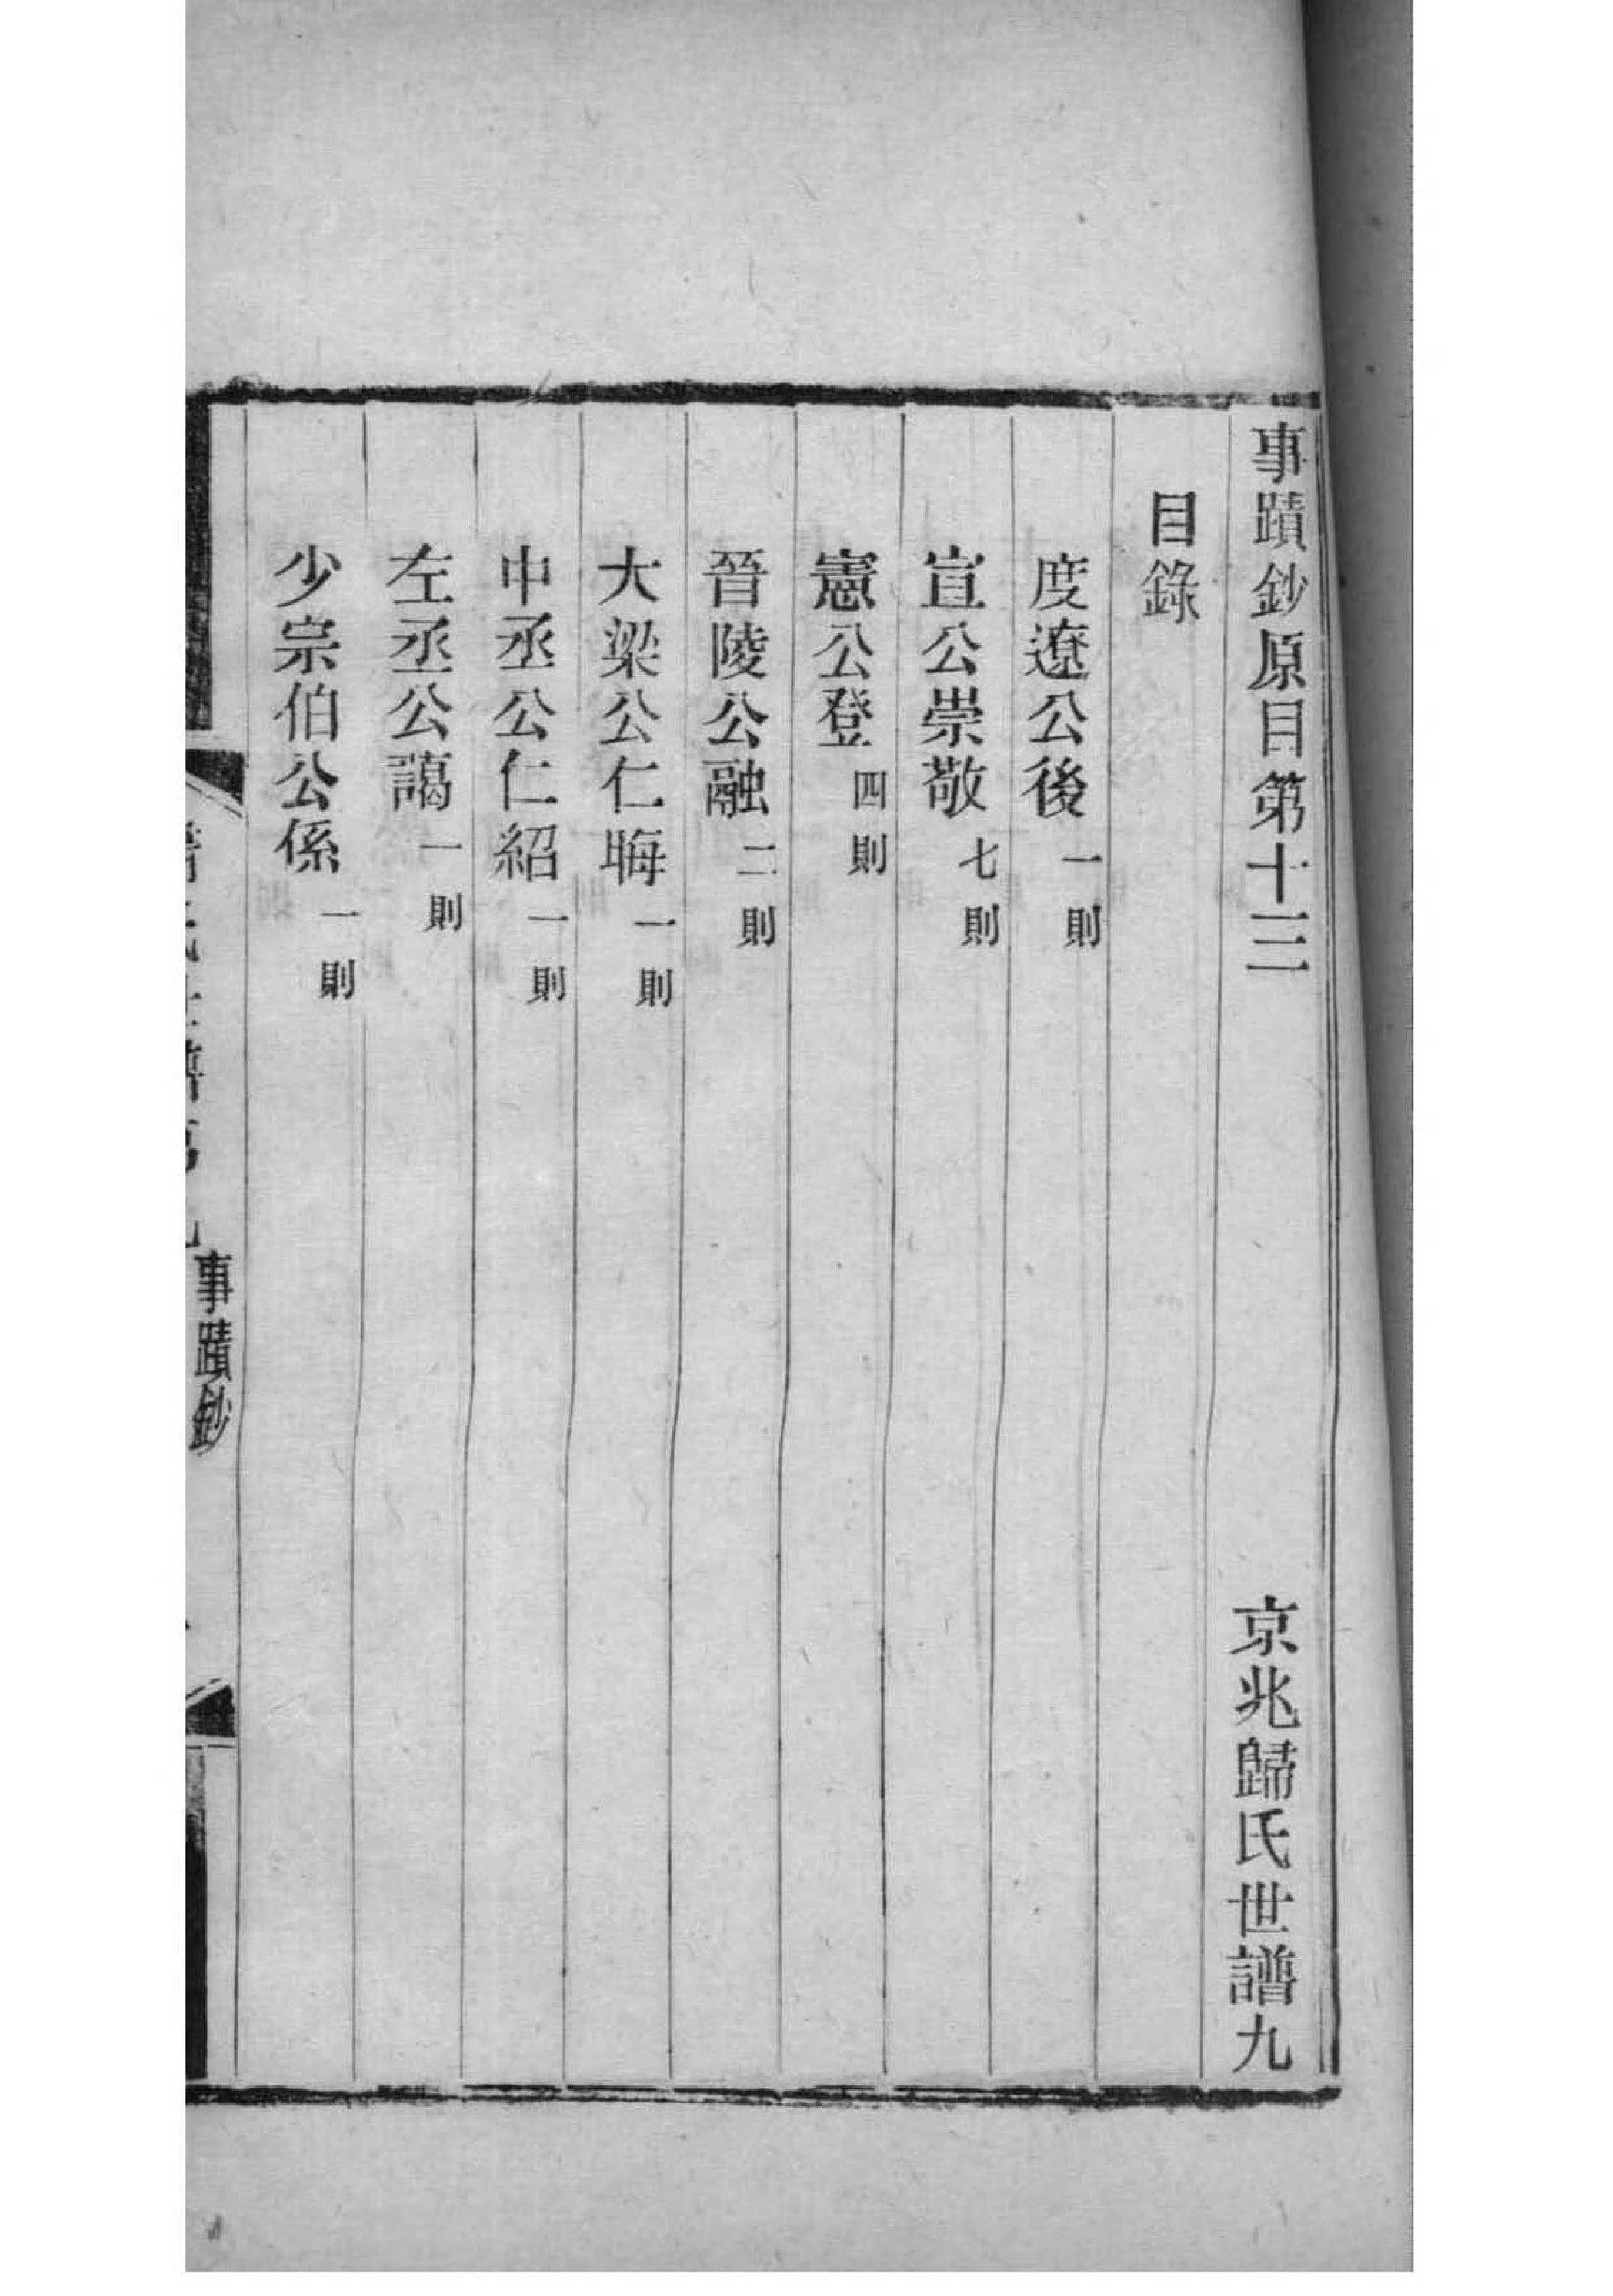 事蹟鈔原目第十三 京兆歸氏世譜九
目錄
度遼公後一則
宣公崇敬七則
憲公登四則
晉陵公融二則
大梁公仁晦一則
中丞公仁紹一則
左丞公藹一則
少宗伯公係一則
事蹟鈔